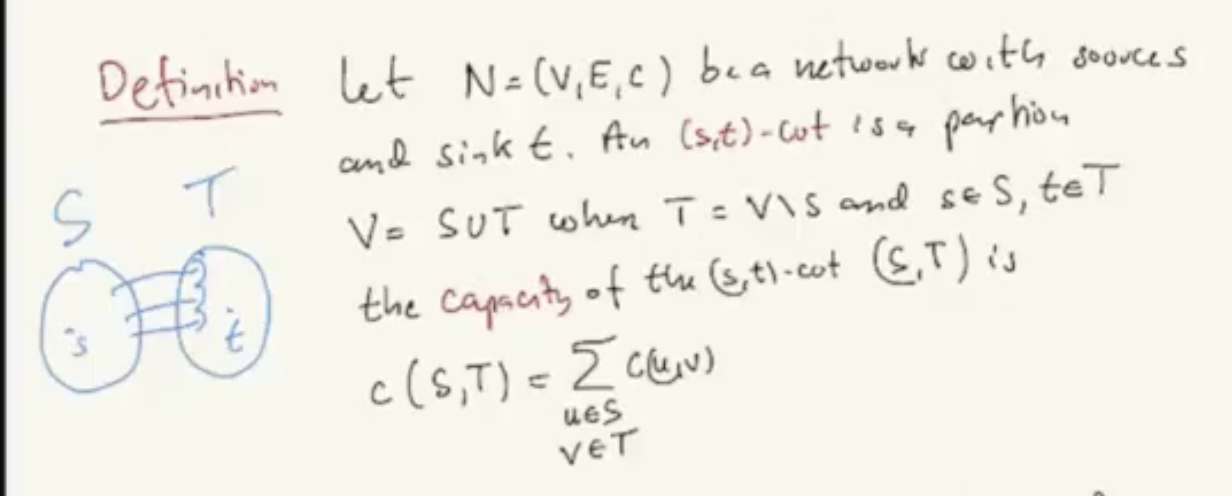 Definition Let N=(V,E,c) be a network with source s
and sink t. An (s,t)-cut is a partion
S T
V= S∪T when T = V\S and s∈S, t∈T
the capacity of the (s,t)-cut (S,T) is
s t
c(S,T) = ∑ c(u,v)
u∈S
v∈T